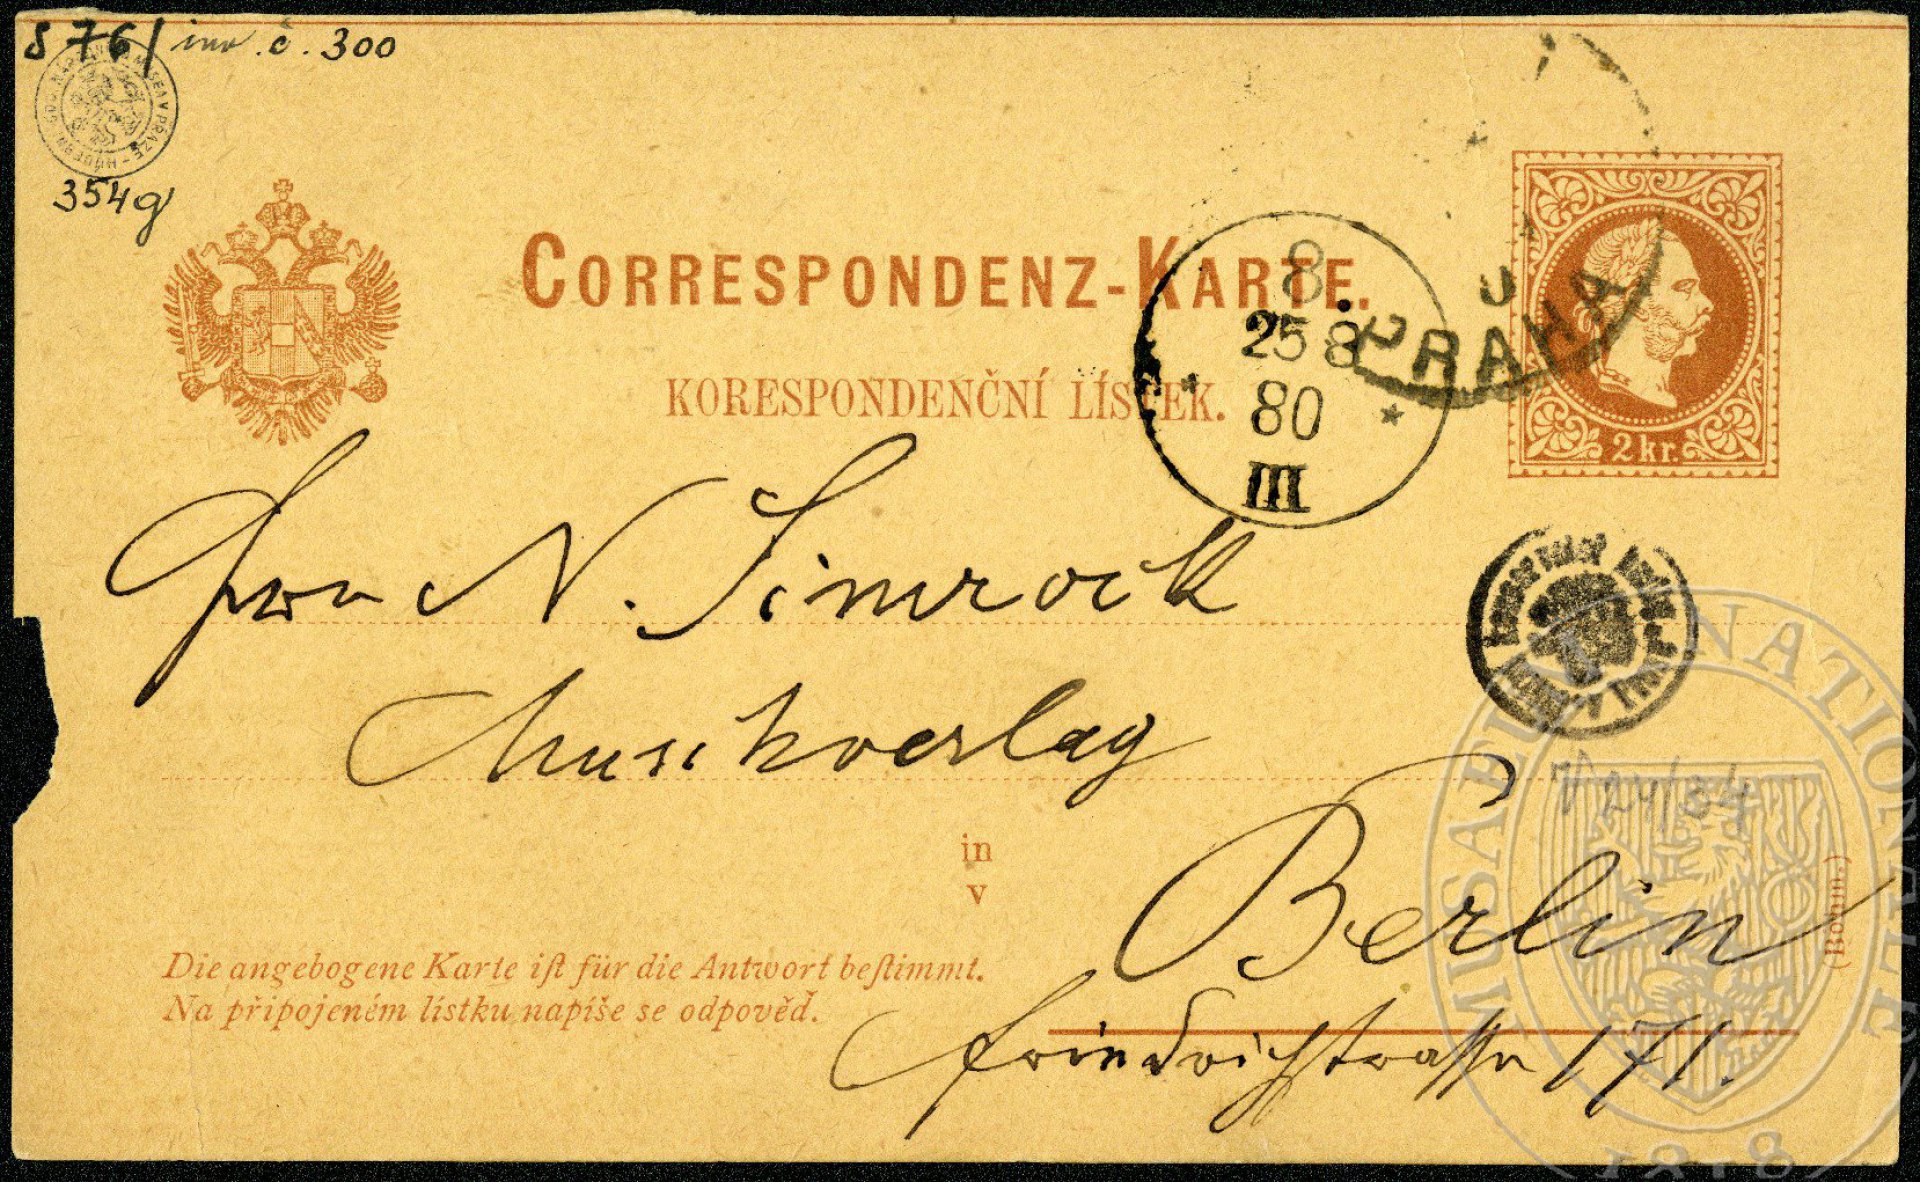 S 76/ inv. č. 300
354g
CORRESPONDENZ-KARTE.
KORESPONDENČNÍ LÍSTEK.
PRAHA
8
25 8
80
III
2 kr.
Herrn N. Simrock
Musikverlag
in
v
Berlin
Friedrichstrasse 171.
Die angebogene Karte iſt für die Antwort beſtimmt.
Na připojeném lístku napíše se odpověď.
(Böhm.)
MUSAEUM NATIONALE
1818